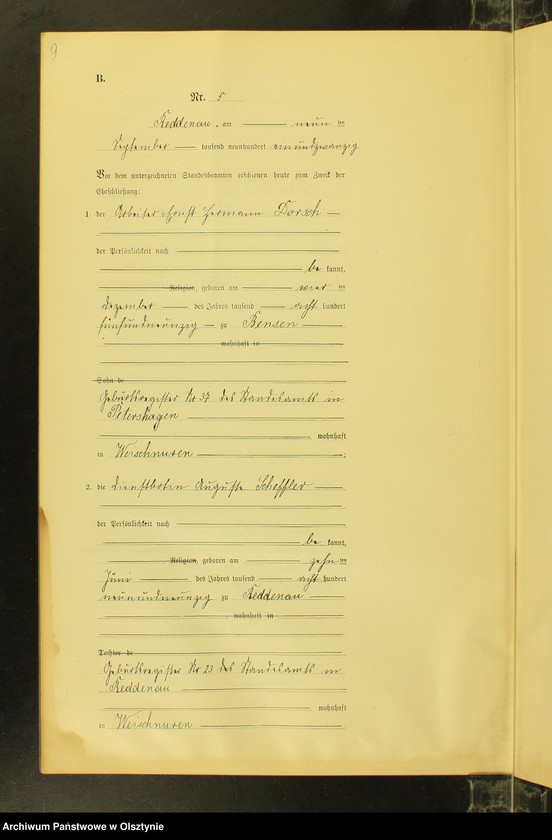 9
B.
Nr. 5
Keddenau, am neun ten
September tausend neunhundert einundzwanzig
Vor dem unterzeichneten Standesbeamten erschienen heute zum Zweck der
Eheschließung:
1. der Arbeiter Ernst Hermann Dorsch
der Persönlichkeit nach
be kannt,
Religion, geboren am vier ten
Dezember des Jahres tausend acht hundert
fünfundneunzig zu Bensen
wohnhaft in
Sohn de
Geburtsregister Nr 37 des Standesamts in
Petershagen
wohnhaft
in Worschnuren ;
2. die Dienstbotin Auguste Scheffler
der Persönlichkeit nach
be kannt,
Religion, geboren am zehn ten
Juni des Jahres tausend acht hundert
neunundneunzig zu Keddenau
, wohnhaft in
Tochter de
Geburtsregister Nr 23 des Standesamts in
Keddenau
wohnhaft
in Worschnuren
Archiwum Państwowe w Olsztynie